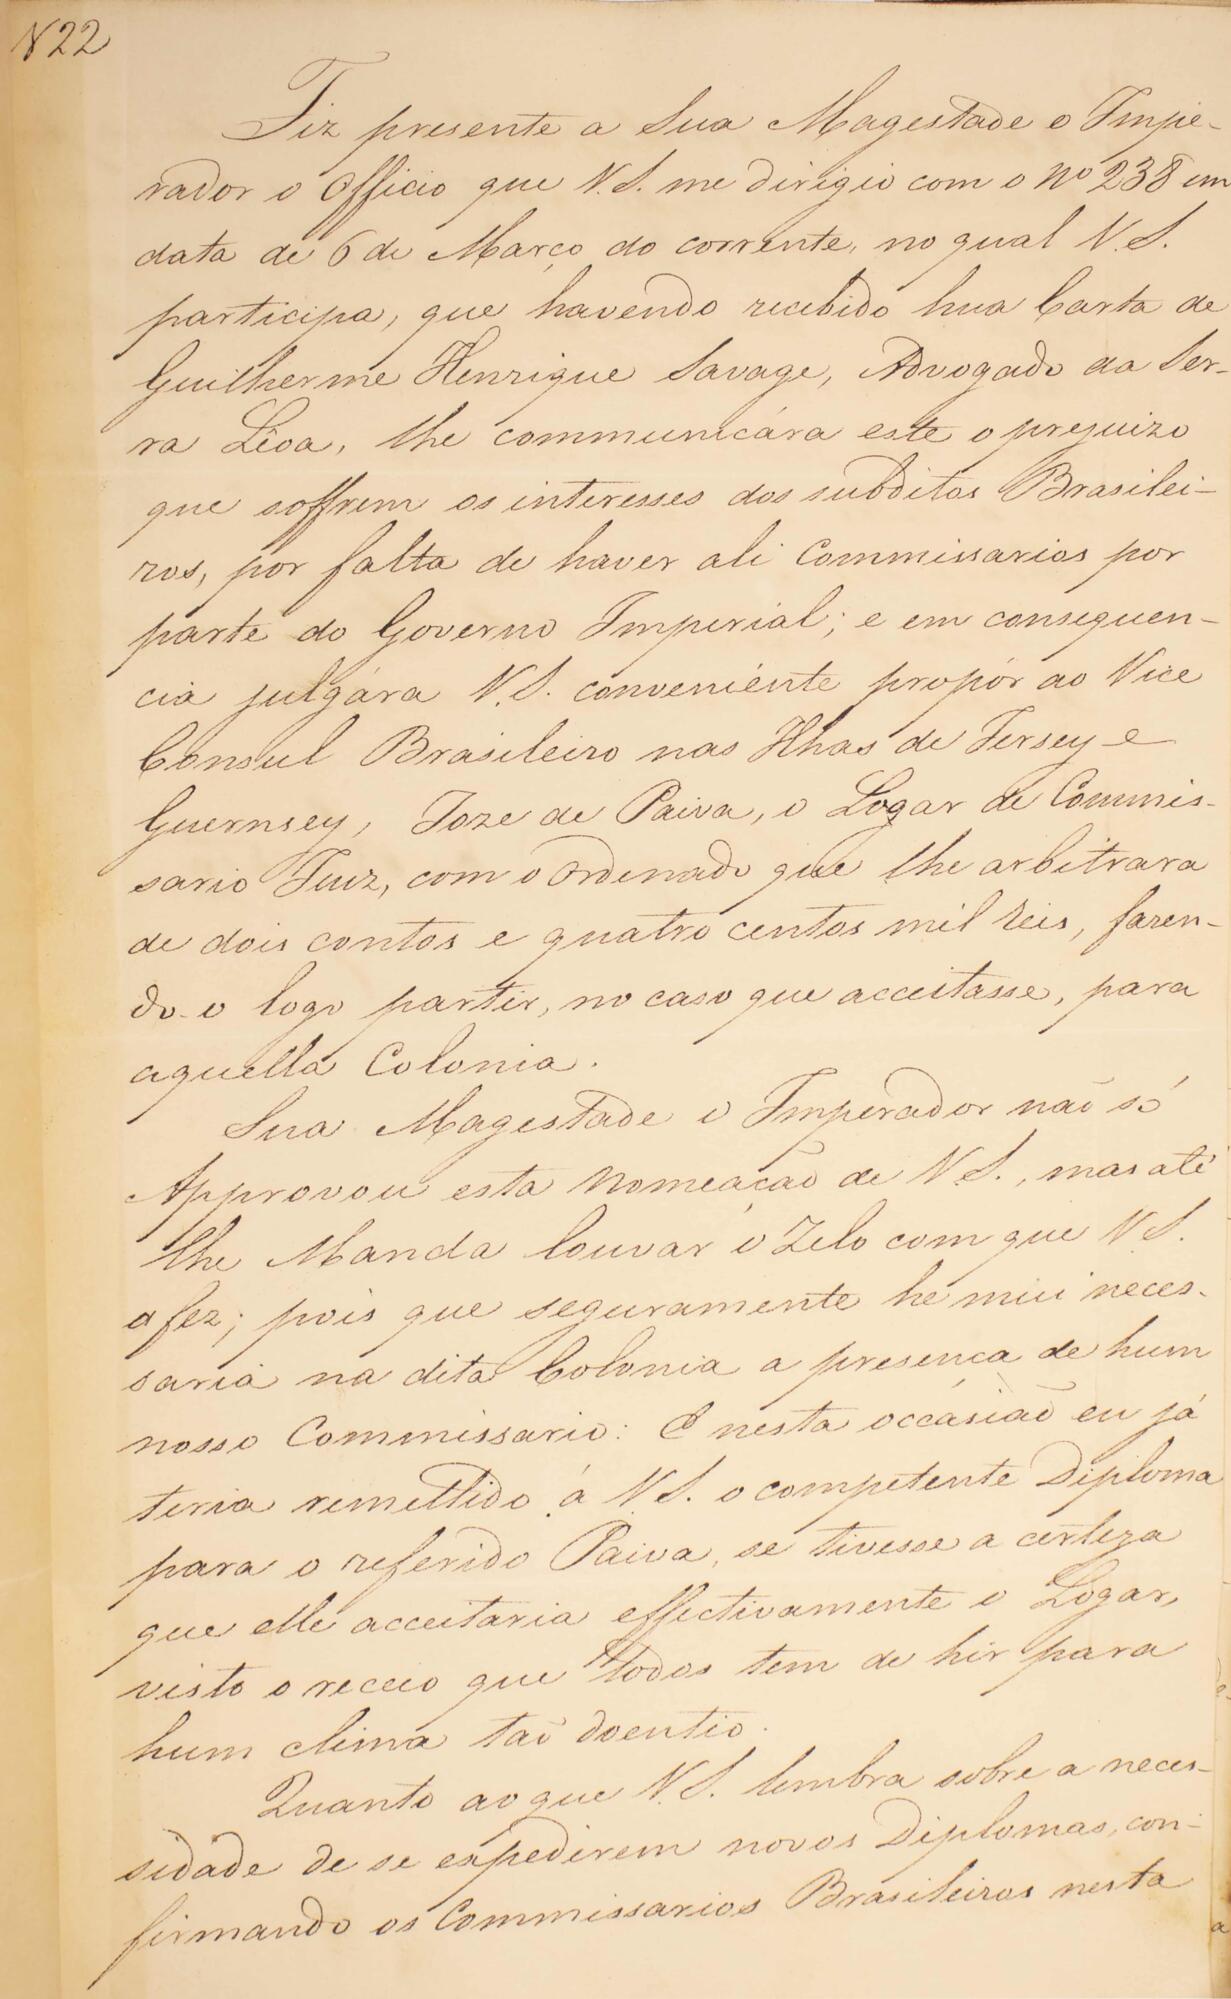 N 22
Fiz presente a Sua Magestade o Impe-
rador o Officio que V.S. me dirigio com o Nº 238 em
data de 6 de Março do corrente, no qual V.S.
participa, que havendo recebido hua Carta de
Guilherme Henrique Savage, Advogado da Ser-
ra Lêoa, lhe communicára este o prejuizo
que soffrem os interesses dos subditos Brasilei-
ros, por falta de haver ali Commissarios por
parte do Governo Imperial; e em consequen-
cia julgára V.S. conveniente propôr ao Vice
Consul Brasileiro nas Ilhas de Jersey e
Guernsey, Joze de Paiva, o Logar de Commis-
sario Juiz, com o Ordenado que lhe arbitrara
de dois contos e quatro centos mil Reis, fazen-
do-o logo partir, no caso que acceitasse, para
aquella Colonia.
Sua Magestade o Imperador não só
Approvou esta Nomeação de V.S., mas até
lhe Manda louvar o Zelo com que V.S.
a fez; pois que seguramente he mui neces-
saria na dita Colonia a presença de hum
nosso Commissario: E nesta occasião eu já
teria remettido á V.S. o competente Diploma
para o referido Paiva, se tivesse a certeza
que elle acceitaria effectivamente o Logar,
visto o receio que todos tem de hir para
hum clima tão doentio.
Quanto ao que V.S. lembra sobre a neces-
sidade de se expedirem novos Diplomas, con-
firmando os Commissarios Brasileiros nesta